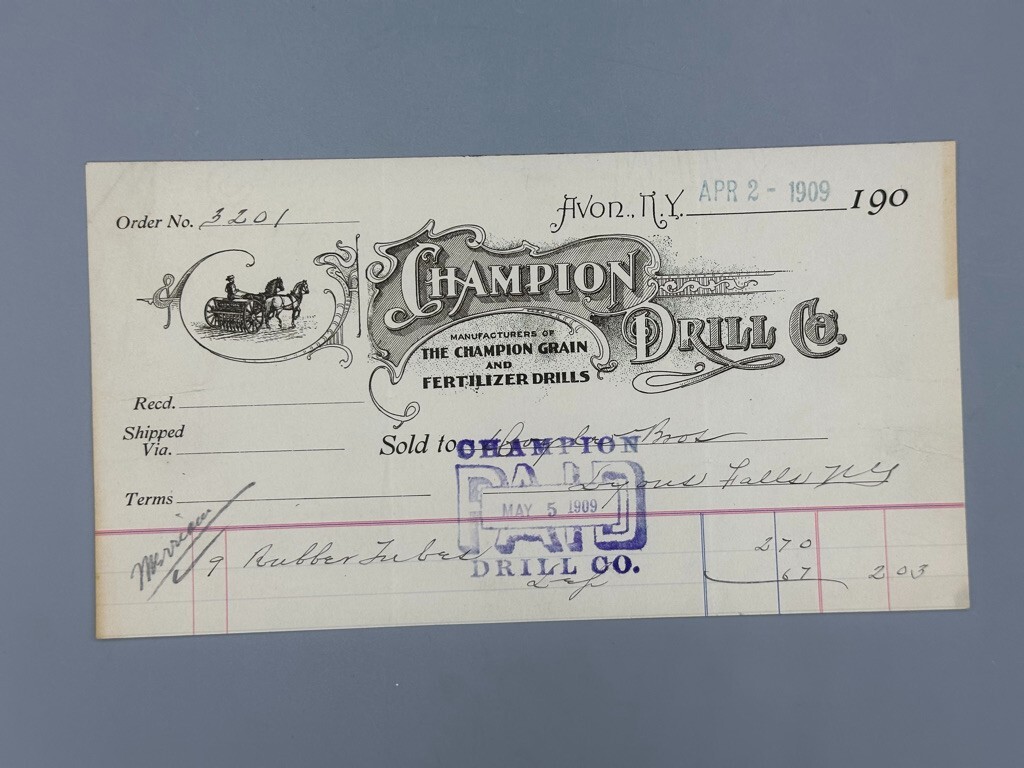 Order No. 3201
Avon, N.Y. APR 2 - 1909 190
CHAMPION
DRILL Co.
MANUFACTURERS OF
THE CHAMPION GRAIN
AND
FERTILIZER DRILLS
Recd.
Shipped
Via.
Sold to Bros
Lyons Falls NY
Terms
CHAMPION
PAID
MAY 5 1909
DRILL CO.
Merriam
9 Rubber Tubes 270
67 203